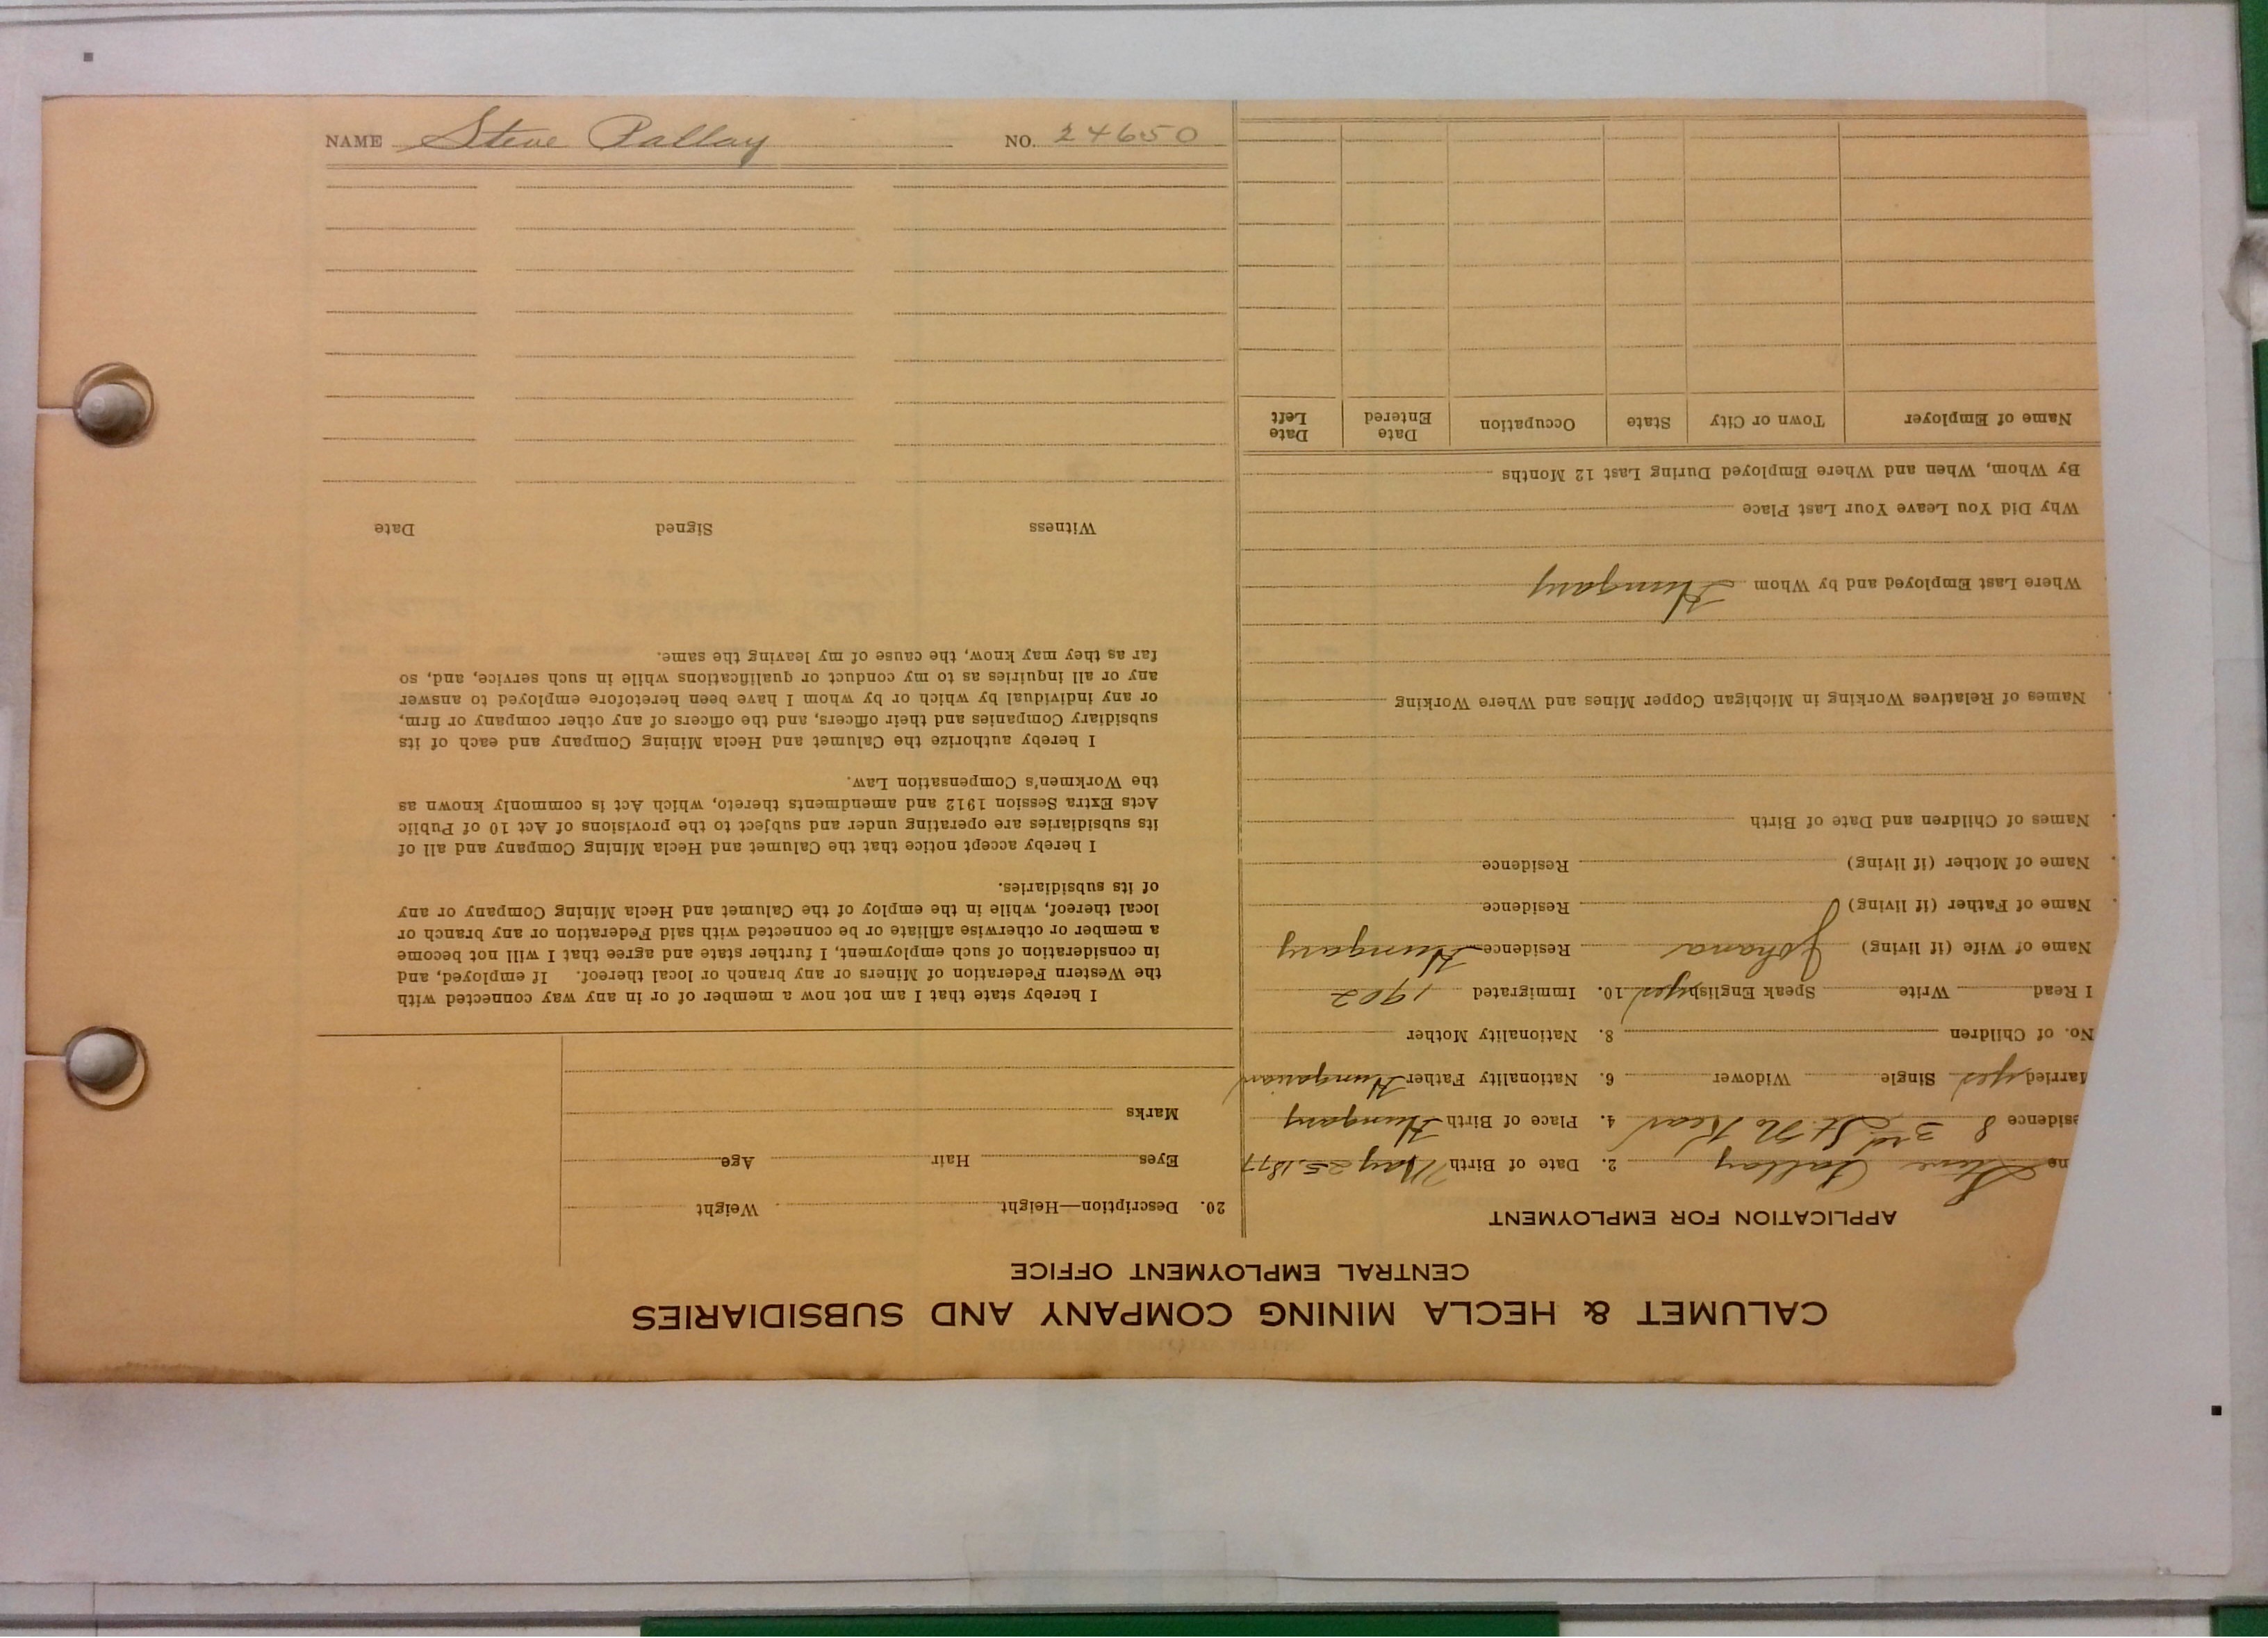 NAME Steve Pallay NO. 24650
CALUMET & HECLA MINING COMPANY AND SUBSIDIARIES
CENTRAL EMPLOYMENT OFFICE
APPLICATION FOR EMPLOYMENT
me Steve Pallay 2. Date of Birth May 25, 1877
esidence 8 3rd St. N Kear 4. Place of Birth Hungary
Married yes Single Widower 6. Nationality Father Hungarian
No. of Children 8. Nationality Mother
I Read Write Speak English yes 10. Immigrated 1902
Name of Wife (if living) Johana Residence Hungary
Name of Father (if living) Residence
Name of Mother (if living) Residence
Names of Children and Date of Birth
Names of Relatives Working in Michigan Copper Mines and Where Working
Where Last Employed and by Whom Hungary
Why Did You Leave Your Last Place
By Whom, When and Where Employed During Last 12 Months
Name of Employer Town or City State Occupation Date Entered Date Left
20. Description—Height Weight
Eyes Hair Age
Marks
I hereby state that I am not now a member of or in any way connected with
the Western Federation of Miners or any branch or local thereof. If employed, and
in consideration of such employment, I further state and agree that I will not become
a member or otherwise affiliate or be connected with said Federation or any branch or
local thereof, while in the employ of the Calumet and Hecla Mining Company or any
of its subsidiaries.
I hereby accept notice that the Calumet and Hecla Mining Company and all of
its subsidiaries are operating under and subject to the provisions of Act 10 of Public
Acts Extra Session 1912 and amendments thereto, which Act is commonly known as
the Workmen's Compensation Law.
I hereby authorize the Calumet and Hecla Mining Company and each of its
subsidiary Companies and their officers, and the officers of any other company or firm,
or any individual by which or by whom I have been heretofore employed to answer
any or all inquiries as to my conduct or qualifications while in such service, and, so
far as they may know, the cause of my leaving the same.
Witness Signed Date